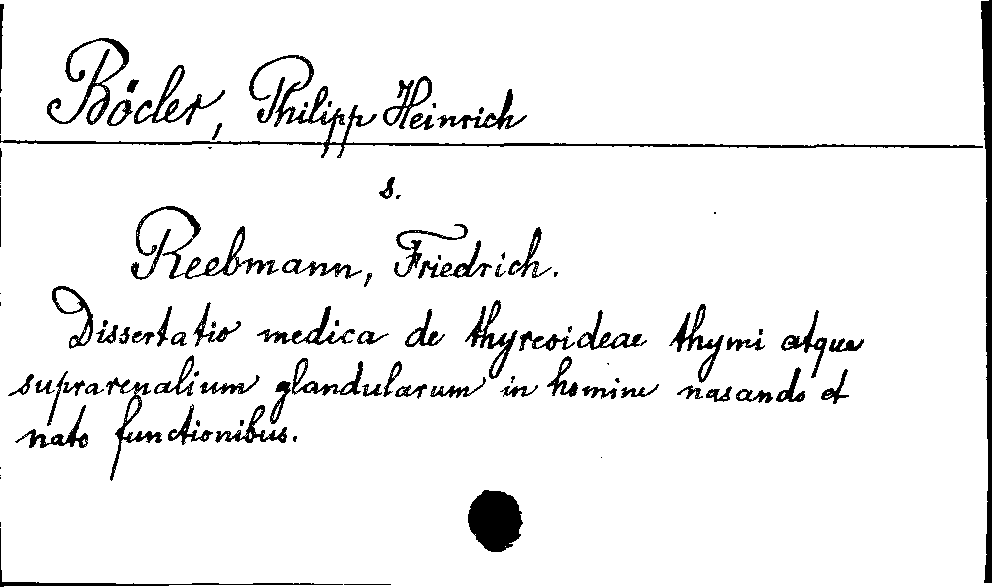 Böcler, Philipp Heinrich
s.
Reebmann, Friedrich.
Dissertatio medica de thyreoideae thymi atque
suprarenalium glandularum in homine nasando et
nato functionibus.